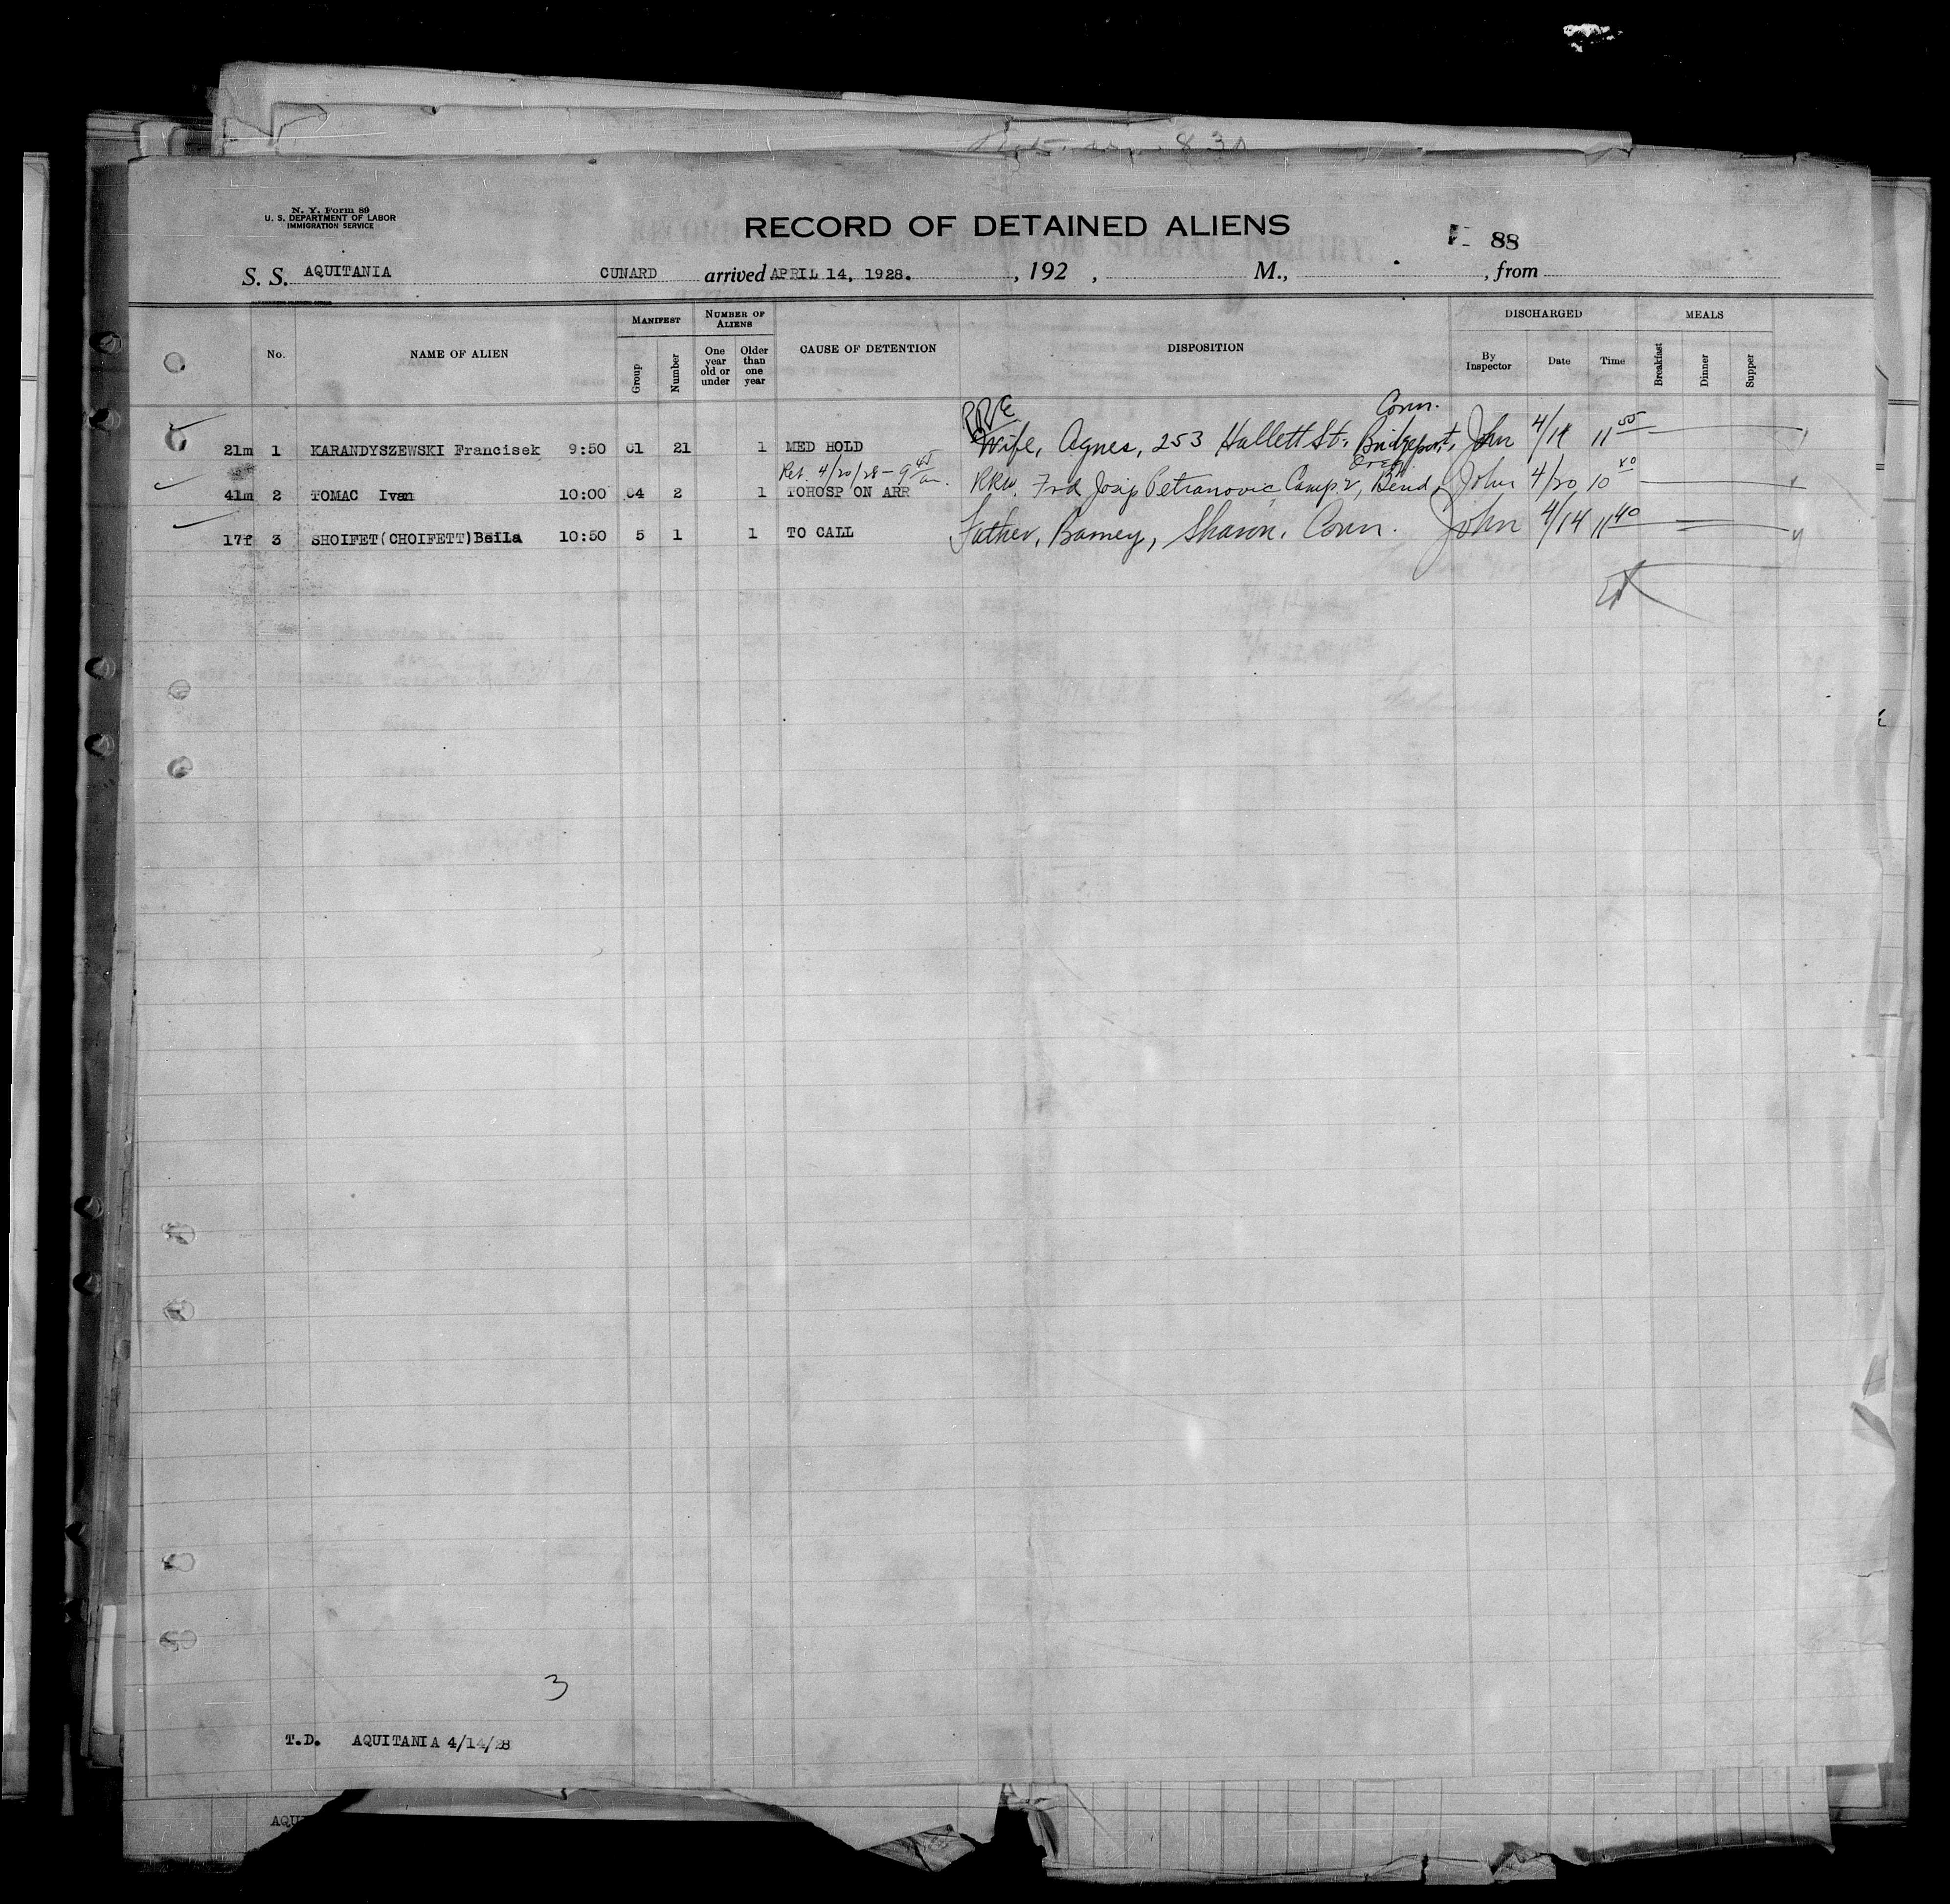 N. Y. Form 89
U. S. DEPARTMENT OF LABOR
IMMIGRATION SERVICE
RECORD OF DETAINED ALIENS
88
S. S. AQUITANIA CUNARD arrived APRIL 14, 1928. , 192 , M., , from
No. NAME OF ALIEN MANIFEST Group Number NUMBER OF ALIENS One year old or under Older than one year CAUSE OF DETENTION DISPOSITION DISCHARGED By Inspector Date Time MEALS Breakfast Dinner Supper
Conn.
21m 1 KARANDYSZEWSKI Francisek 9:50 C1 21 1 MED HOLD Wife, Agnes, 253 Hallett St. Bridgeport, John 4/14 11 55
Ret. 4/20/28 - 9 45 am. Oreg.
41m 2 TOMAC Ivan 10:00 C4 2 1 TOHOSP ON ARR RRW. Frd Josip Petranovic Camp 2, Bend, John 4/20 10
17f 3 SHOIFET(CHOIFETT)Beila 10:50 5 1 1 TO CALL Father, Barney, Sharon, Conn. John 4/14 11 40
3
T.D. AQUITANIA 4/14/28
AQU